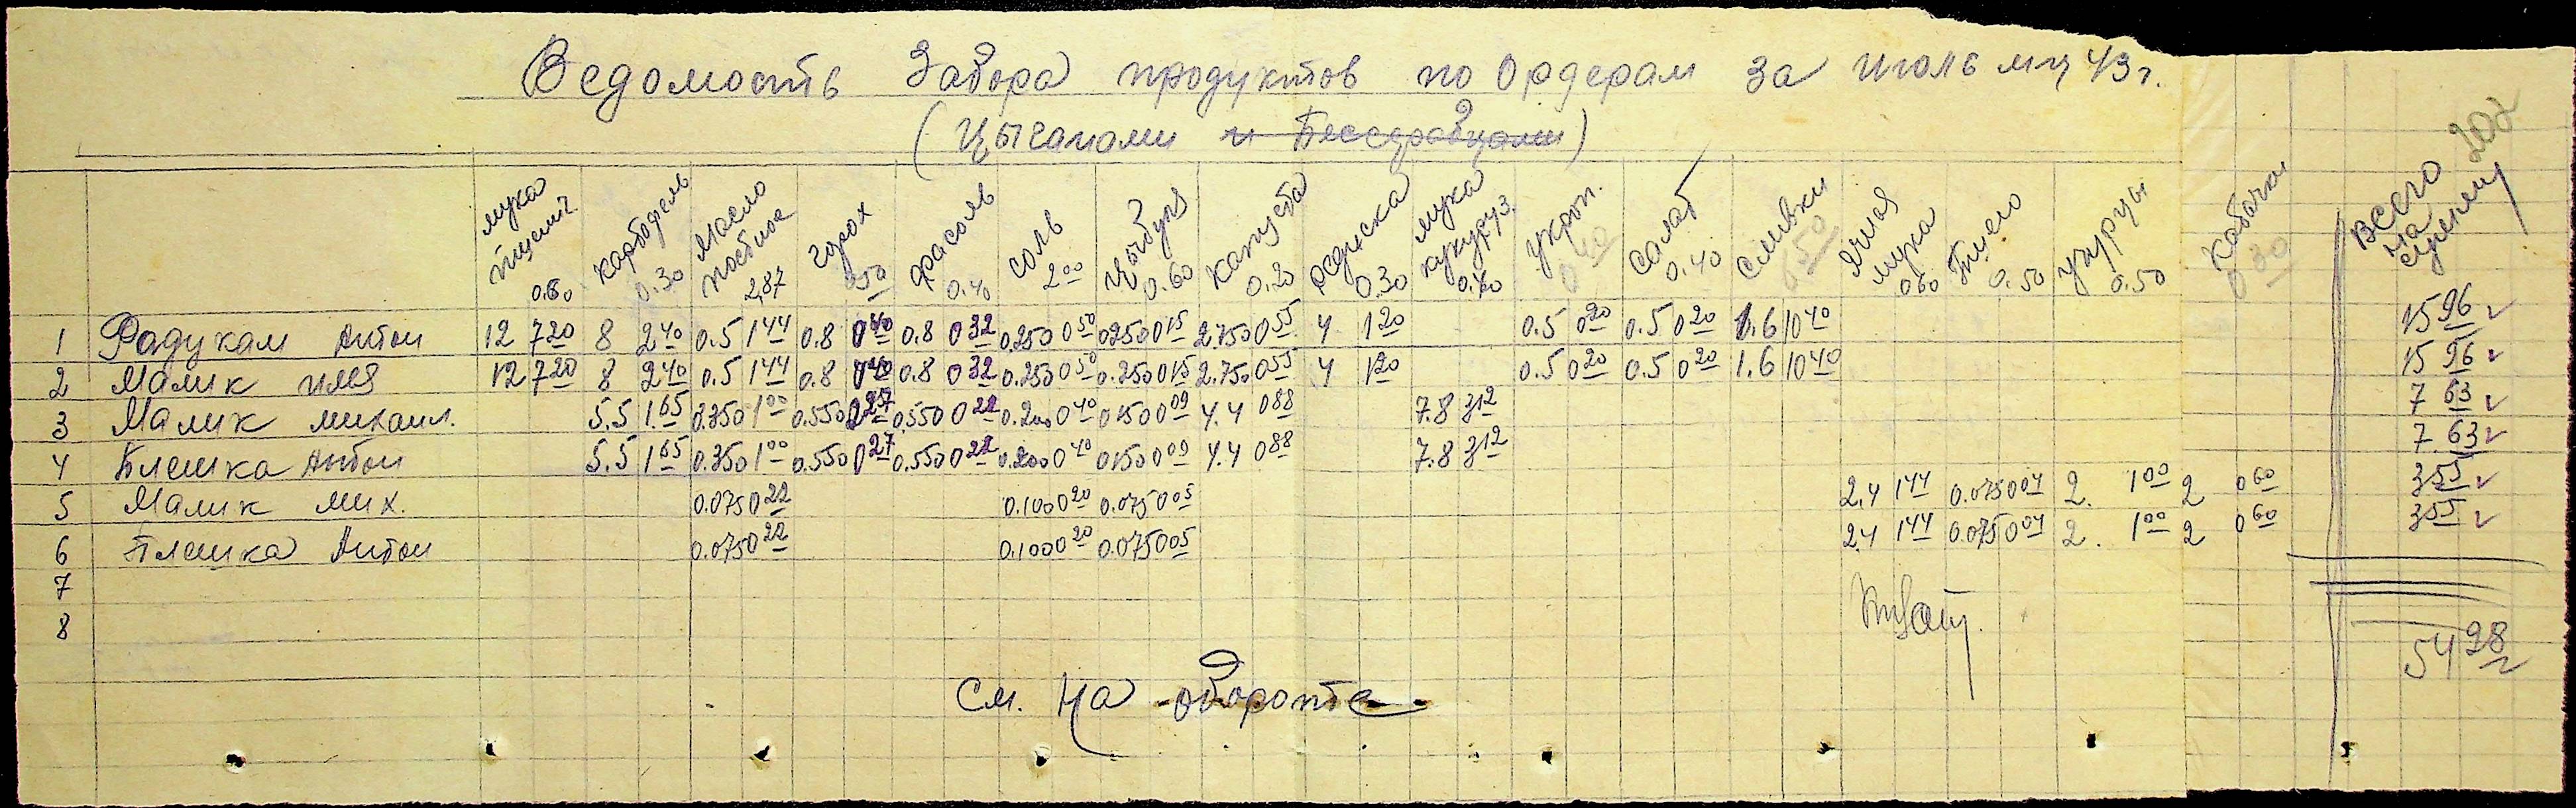 Ведомость Забора продуктов по Ордерам за июль м-ц 43 г.
(Цыганами и Бессарабцами)
202
мука пшенич. 0.60 картофель 0.30 Масло постное 2,87 горох 0 50 фасоль 0.40 соль 2 00 Цыбуля 0.60 капуста 0.20 редиска 0.30 мука кукуруз. 0.40 укроп. 0 40 Салат 0.40 Сливки 6 50 Ячная мука 0 60 Пшено 0.50 угурцы 0.50 Кабачки 0 30 Всего на сумму
1 Радукан Антон 12 7 20 8 2 40 0.5 1 44 0.8 0 40 0.8 0 32 0.250 0 50 0250 0 15 2.750 0 55 4 1 20 0.5 0 20 0.5 0 20 1.6 10 40 15 96
2 Малик илья 12 7 20 8 2 40 0.5 1 44 0.8 0 40 0.8 0 32 0.250 0 50 0.250 0 15 2.750 0 55 4 1 20 0.5 0 20 0.5 0 20 1.6 10 40 15 96
3 Малик михаил. 5.5 1.65 0.350 1 00 0.550 0 27 0.550 0 22 0.200 0 40 0150 0 09 4.4 0 88 7.8 3 12 7 63
4 Блешка Антон 5.5 1 65 0.350 1 00 0.550 0 27 0.550 0 22 0.200 0 40 0150 0 09 4.4 0 88 7.8 3 12 7 63
5 Малик мих. 0.075 0 22 0.100 0 20 0.075 0 05 2.4 1 44 0.075 0 04 2. 1 00 2 0 60 3 55
6 Плешка Антон 0.075 0 22 0.100 0 20 0.075 0 05 2.4 1 44 0.075 0 04 2. 1 00 2 0 60 3 55
7
8
54 28
См. На обороте